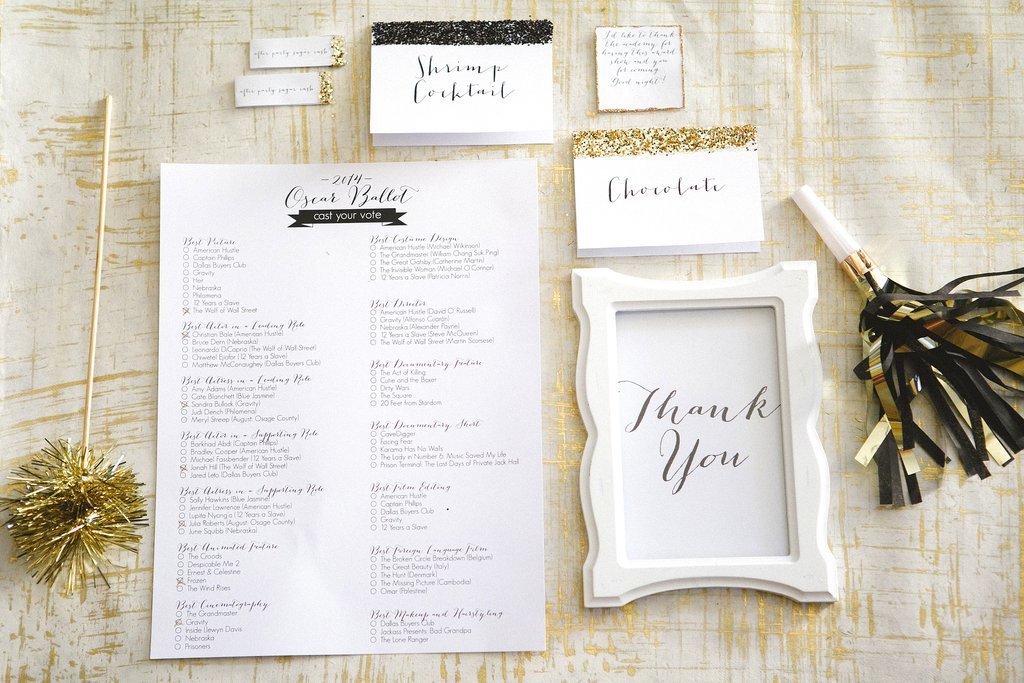 after party sugar rush
after party sugar rush
Shrimp
Cocktail
I'd like to thank
the academy for
having this award
show and you
for coming
Good night!
Chocolate
-2014-
Oscar Ballot
cast your vote
Best Picture
American Hustle
Captain Philips
Dallas Buyers Club
Gravity
Her
Nebraska
Philomena
12 Years a Slave
The Wolf of Wall Street
Best Actor in a Leading Role
Christian Bale (American Hustle)
Bruce Dern (Nebraska)
Leonardo DiCaprio (The Wolf of Wall Street)
Chiwetel Ejiofor (12 Years a Slave)
Matthew McConaughey (Dallas Buyers Club)
Best Actress in a Leading Role
Amy Adams (American Hustle)
Cate Blanchett (Blue Jasmine)
Sandra Bullock (Gravity)
Judi Dench (Philomena)
Meryl Streep (August: Osage County)
Best Actor in a Supporting Role
Barkhad Abdi (Captain Philips)
Bradley Cooper (American Hustle)
Michael Fassbender (12 Years a Slave)
Jonah Hill (The Wolf of Wall Street)
Jared Leto (Dallas Buyers Club)
Best Actress in a Supporting Role
Sally Hawkins (Blue Jasmine)
Jennifer Lawrence (American Hustle)
Lupita Nyong'o (12 Years a Slave)
Julia Roberts (August: Osage County)
June Squibb (Nebraska)
Best Animated Feature
The Croods
Despicable Me 2
Ernest & Celestine
Frozen
The Wind Rises
Best Cinematography
The Grandmaster
Gravity
Inside Llewyn Davis
Nebraska
Prisoners
Best Costume Design
American Hustle (Michael Wilkinson)
The Grandmaster (William Chang Suk Ping)
The Great Gatsby (Catherine Martin)
The Invisible Woman (Michael O'Connor)
12 Years a Slave (Patricia Norris)
Best Director
American Hustle (David O'Russell)
Gravity (Alfonso Cuarón)
Nebraska (Alexander Payne)
12 Years a Slave (Steve McQueen)
The Wolf of Wall Street (Martin Scorsese)
Best Documentary Feature
The Act of Killing
Cutie and the Boxer
Dirty Wars
The Square
20 Feet from Stardom
Best Documentary Short
CaveDigger
Facing Fear
Karama Has No Walls
The Lady in Number 6: Music Saved My Life
Prison Terminal: The Last Days of Private Jack Hall
Best Film Editing
American Hustle
Captain Philips
Dallas Buyers Club
Gravity
12 Years a Slave
Best Foreign Language Film
The Broken Circle Breakdown (Belgium)
The Great Beauty (Italy)
The Hunt (Denmark)
The Missing Picture (Cambodia)
Omar (Palestine)
Best Makeup and Hairstyling
Dallas Buyers Club
Jackass Presents: Bad Grandpa
The Lone Ranger
Thank
You